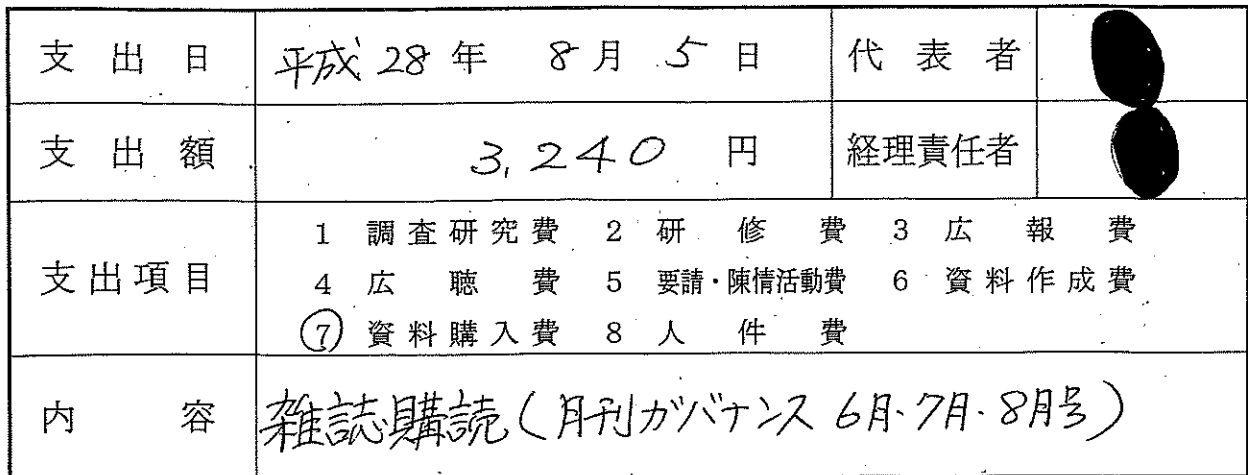 支出日 平成28年 8月 5日 代表者
支出額 3,240 円 経理責任者
1 調査研究費 2 研修費 3 広報費
支出項目 4 広聴費 5 要請・陳情活動費 6 資料作成費
⑦ 資料購入費 8 人件費
内容 雑誌購読(月刊ガバナンス 6月・7月・8月号)